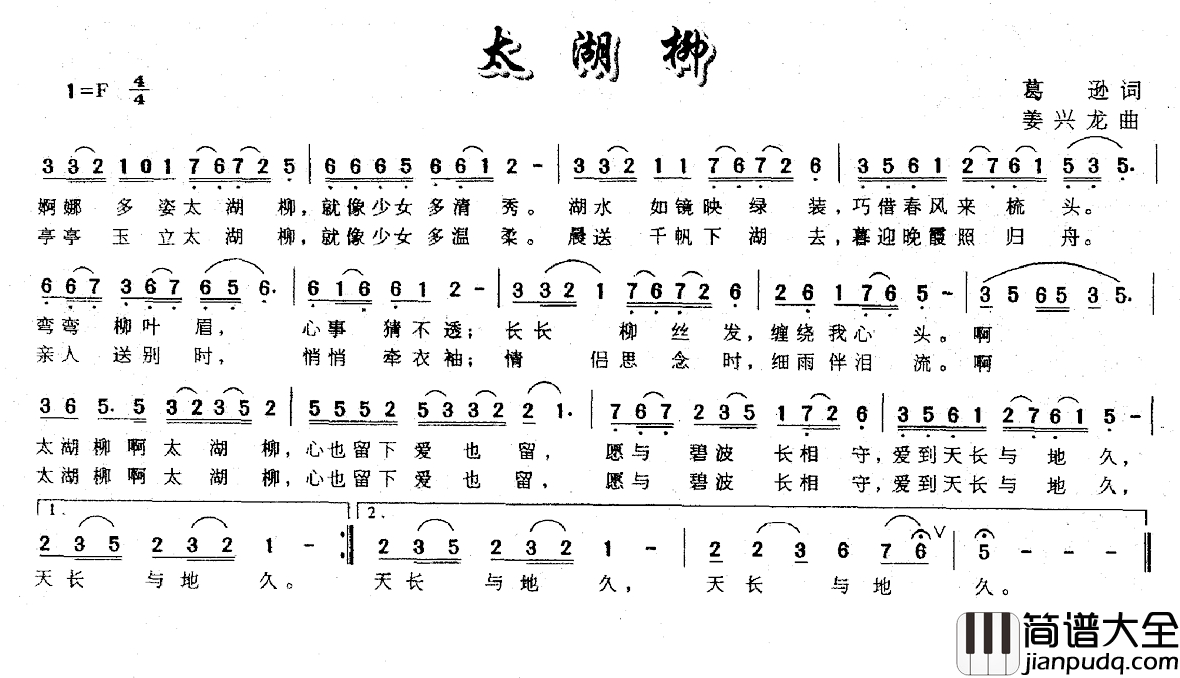 太湖柳
1=F 4/4
葛逊词
姜兴龙曲
3 3 2 1 0 1 7 6 7 2 5 | 6 6 6 5 6 6 1 2 - | 3 3 2 1 1 7 6 7 2 6 | 3 5 6 1 2 7 6 1 5 3 5. |
婀娜 多姿太湖柳,就像少女多清秀。湖水 如镜映绿装,巧借春风来梳头。
亭亭 玉立太湖柳,就像少女多温柔。晨送 千帆下湖去,暮迎晚霞照归舟。
6 6 7 3 6 7 6 5 6. | 6 1 6 6 1 2 - | 3 3 2 1 7 6 7 2 6 | 2 6 1 7 6 5 - | 3 5 6 5 3 5. |
弯弯 柳叶眉, 心事 猜不透;长长 柳丝发,缠绕我心头。啊
亲人 送别时, 悄悄 牵衣袖;情 侣思念时,细雨伴泪流。啊
3 6 5. 5 3 2 3 5 2 | 5 5 5 2 5 3 3 2 2 1. | 7 6 7 2 3 5 1 7 2 6 | 3 5 6 1 2 7 6 1 5 - |
太湖柳啊太湖柳,心也留下爱也留, 愿与碧波长相守,爱到天长与地久,
太湖柳啊太湖柳,心也留下爱也留, 愿与碧波长相守,爱到天长与地久,
1. 2.
2 3 5 2 3 2 1 - :| 2 3 5 2 3 2 1 - | 2 2 3 6 7 6 V | 5 - - - ||
天长 与地久。 天长 与地久, 天长 与地久。
简谱大全
jianpudq.com